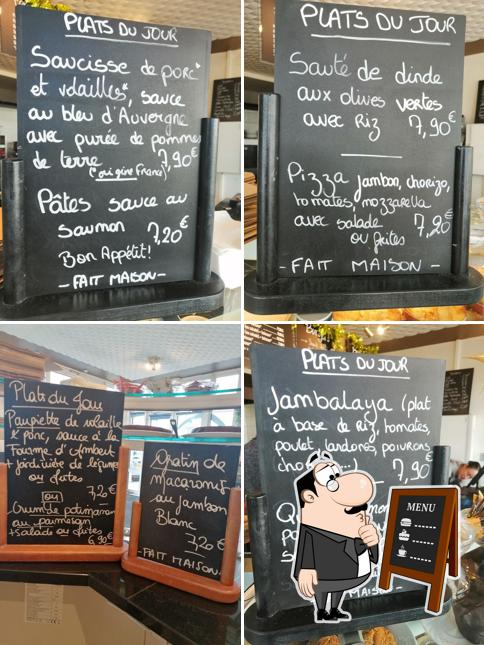 PLATS DU JOUR
Saucisse de porc*
et volailles*, sauce
au bleu d'Auvergne
avec purée de pommes
de terre 7,90€
(*origine France)
Pâtes sauce au
saumon 7,20€
Bon Appétit!
- FAIT MAISON -
PLATS DU JOUR
Sauté de dinde
aux olives vertes
avec Riz 7,90€
Pizza jambon, chorizo,
tomates, mozzarella
avec salade 7,20€
ou frites
- FAIT MAISON -
Plats du Jour
Paupiette de volaille
& porc, sauce à la
Fourme d'Ambert
+ jardinière de légumes
ou frites
7,20€
ou
Crumble potimarron
au parmesan
+ Salade ou frites
6,90€
Gratin de
macaroni
au jambon
Blanc
7,20€
- FAIT MAISON -
PLATS DU JOUR
Jambalaya (plat
à base de Riz, tomates,
poulet, lardons, poivrons
7,90€
MENU